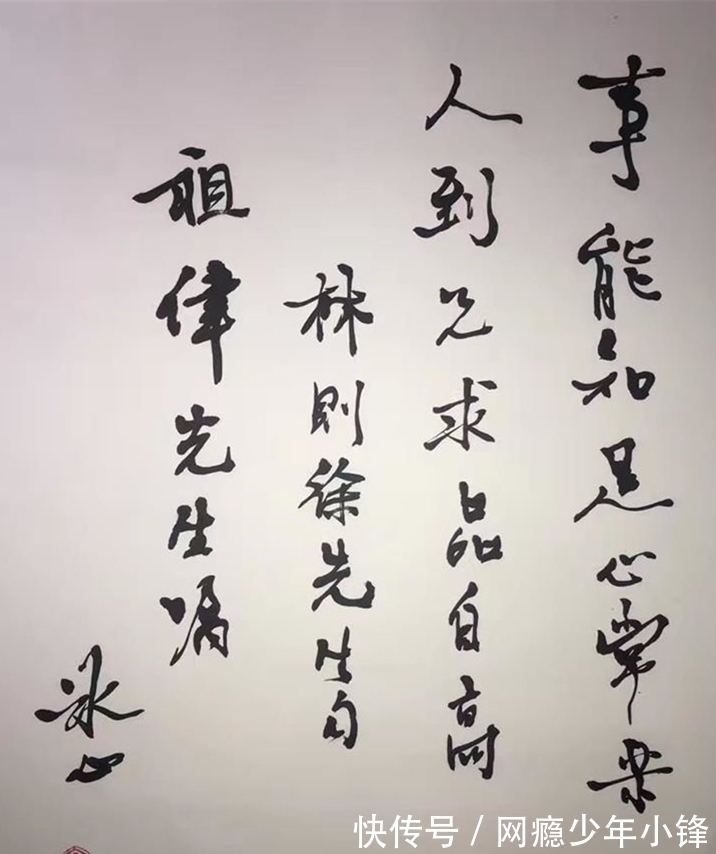 事能知足心常乐
人到无求品自高
林则徐先生句
祖偉先生嘱
冰心
快传号 / 网瘾少年小锋